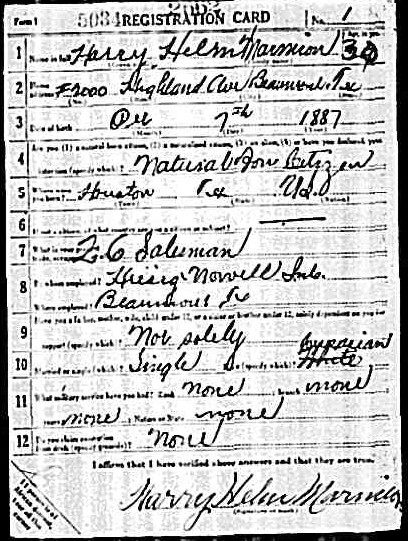 Form 1
5034 REGISTRATION CARD No. 1
1 Name in full Harry Helm Marmion 30
2 Home address 2000 Highland Ave Beaumont, Tx
3 Date of birth Dec 7th 1887
(Month) (Day) (Year)
Are you (1) a natural born citizen, (2) a naturalized citizen, (3) an alien, (4) or have you declared your
4 intention (specify which)? Natural born citizen
5 Where were you born? Houston Tx USA
(Town) (State) (Nation)
6 If not a citizen, of what country are you a citizen or subject?
7 What is your Salesman
8 By whom employed? Heisig Norvell Inc.
Where employed? Beaumont Tx
Have you a father, mother, wife, child under 12, or a sister or brother under 12, solely dependent on you for
9 support (specify which)? Not solely
10 Married or single (which)? Single Race (specify which)? White
11 What military service have you had? Rank none branch none
years none Nation or State none
12 Do you claim exemption from draft (specify grounds)? None
I affirm that I have verified above answers and that they are true.
Harry Helm Marmion
(Signature or mark)